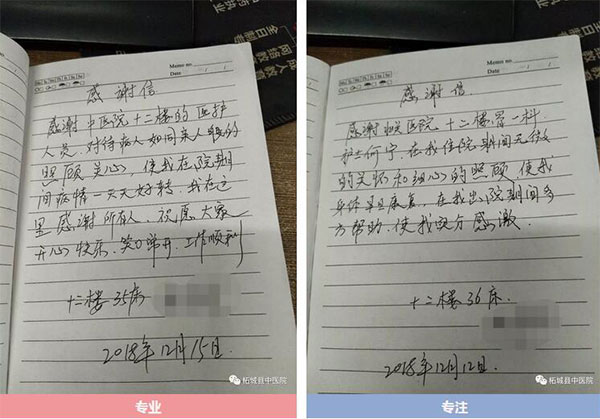 Memo no.
Date
感谢信
感谢中医院十二楼的医护
人员,对待病人如同亲人般的
照顾关心,使我在院期
间病情一天天好转,我在这
里感谢所有人,祝愿大家
开心快乐,笑口常开,工作顺利
十二楼35床
2018年12月15日.
柘城县中医院
专业
Memo no.
Date
感谢信
感谢 医院十二楼 一科
护士何宁,在我住院期间无微
的关怀和细心的照顾,使我
身体早日康复,在我出院期间多
方帮助,使我 分感激.
十二楼36床.
2018年12月12日.
柘城县中医院
专注